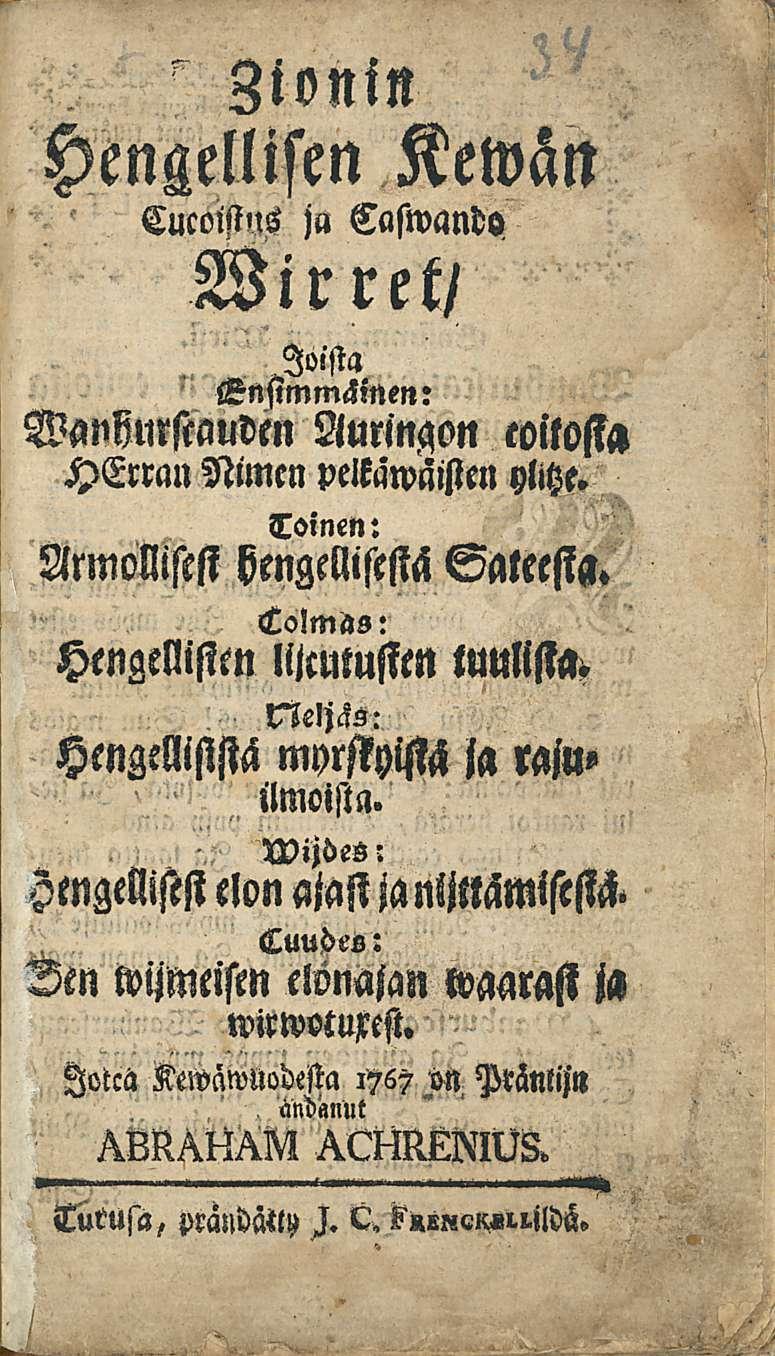 34
Zionin
Hengellisen Kewän
Cucoistus ja Caswando
Wirret/
Joista
Ensimmäinen:
Wanhurscauden Auringon coitosta
HErran Nimen pelkäwäisten ylitze.
Toinen:
Armollisest hengellisestä Sateesta.
Colmas:
Hengellisten lijcutusten tuulista.
Neljäs:
Hengellisistä myrskyistä ja raju-
ilmoista.
Wijdes:
Hengellisest elon ajast ja nijttämisestä.
Cuudes:
Sen wijmeisen elonajan waarast ja
wirwotuxest.
Jotca Kewäwuodesta 1767 on Präntijn
andanut
ABRAHAM ACHRENIUS.
Turusa, prändätty J. C. FRENCKELLildä.